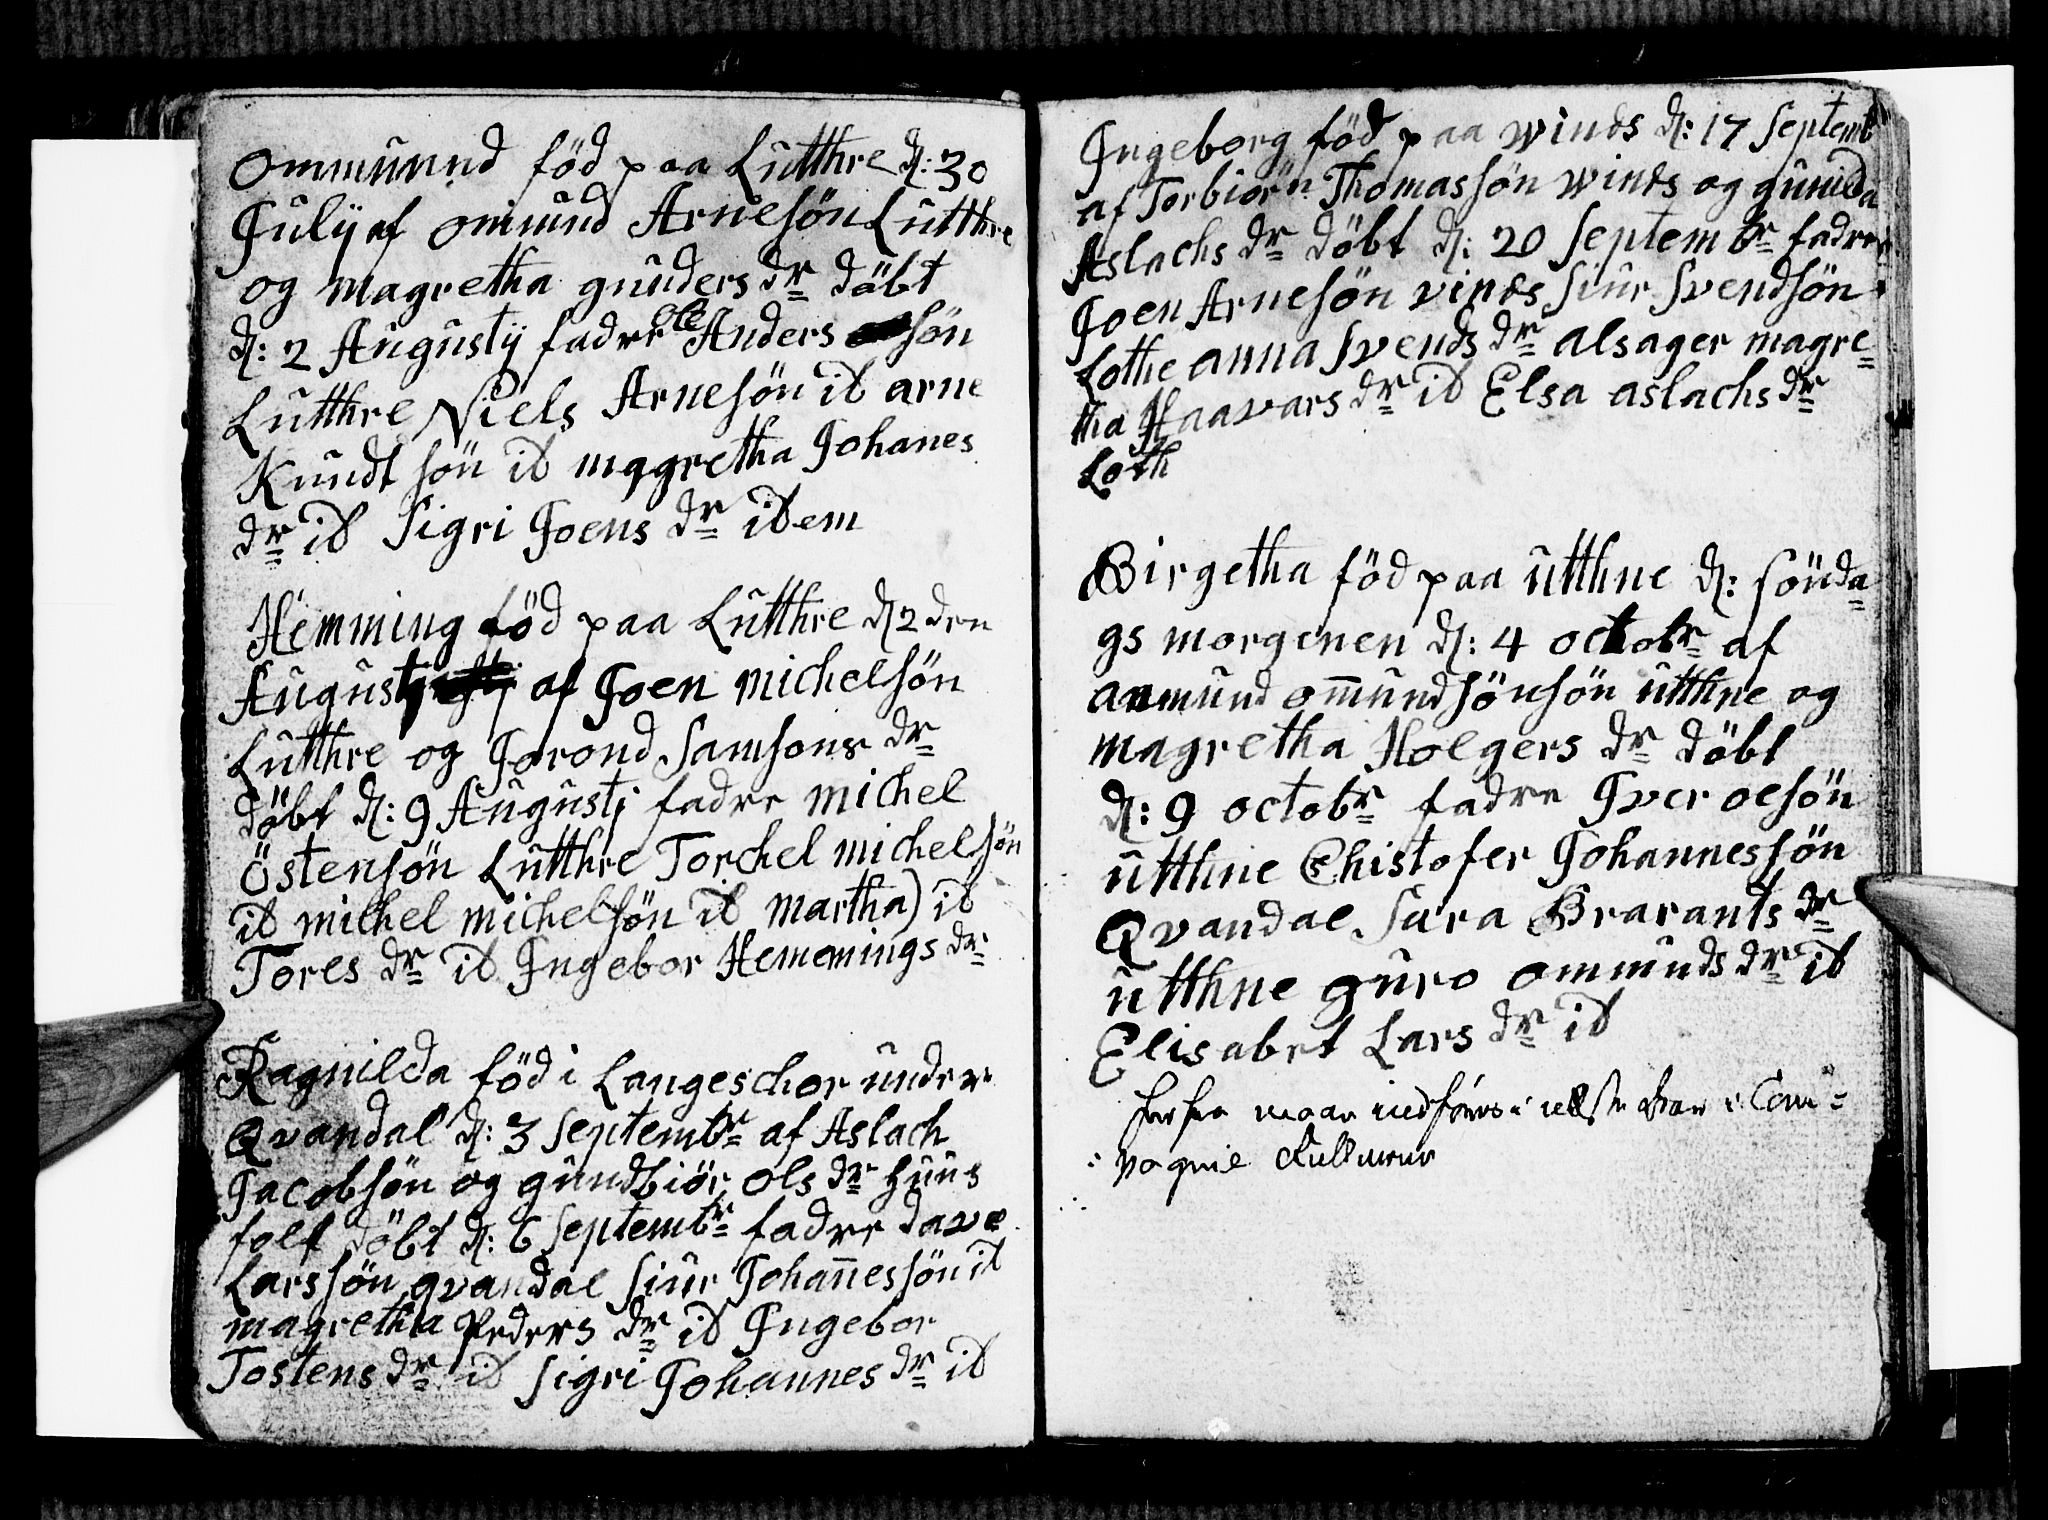 Ommunnd föd paa Lutthre d: 30
Julÿ af omund Arnesön Lutthre
og magretha gunders dr döbt
d: 2 Augustÿ fadre ole Anders sön
Lutthre Niels Arnesön id arne
Knudt sön id magretha Johanes
dr id Sigri Joens dr idem
Hemming föd paa Lutthre d 2 den
Augustj af Joen michelsön
Lutthre og Jorond Samsons dr
döbt d: 9 Augustj fadre michel
Östensön Lutthre Torchel michelsön
id michel michelsön id martha) id
Tores dr id Ingebor Hemmings dr
Ragnilda föd i Langeschor under
Qvandal d: 3 Septembr af Aslach
Jacobsön og gundbiör ols dr huus
folk döbt d: 6 Septembr fadre dave
Larssön qvandal Siur Johannessön id
magretha Peders dr id Ingebor
Tostens dr id Sigri Johannes dr id
Ingeborg föd paa winds d: 17 Septemb
af Torbiörn Thomassön winds og gunilda
Aslachs dr döbt d: 20 Septembr fadre
Joen Arnesön vinds Siur Svendsön
Lothe anna Svends dr alsager magre=
tha Haavars dr id Elsa aslachs dr
Loth
Birgetha föd paa utthne d: sönda=
gs morgenen d: 4 octobr af
anmund omundsönsön utthne og
magretha Holgers dr döbt
d: 9 octobr fadre Iver olsön
utthne Chistofer Johannessön
Qvandal Sara Brarants dr
utthne guro ommunds dr id
Elisabet Lars dr id
maa indföres i